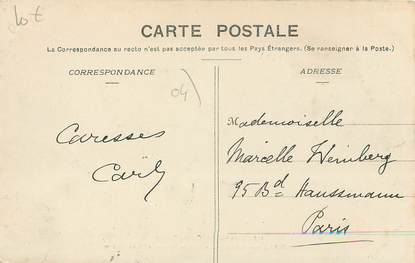 Lot
CARTE POSTALE
La Correspondance au recto n'est pas acceptée par tous les Pays Étrangers. (Se renseigner à la Poste.)
CORRESPONDANCE
ADRESSE
04)
Caresses
Mademoiselle
Marcelle Weinberg
95 Bd Haussmann
Paris